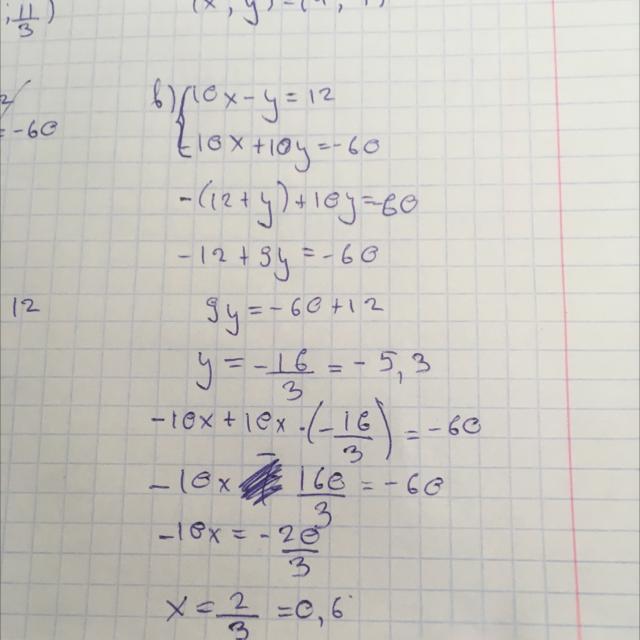 ; 11/3) (x, y) = (
2/
= -60
в) { 10x - y = 12
10x + 10y = -60
-(12 + y) + 10y = -60
-12 + 9y = -60
12
9y = -60 + 12
y = -16/3 = -5,3
-10x + 10x · (-16/3) = -60
-10x - 160/3 = -60
-10x = -20/3
x = 2/3 = 0,6